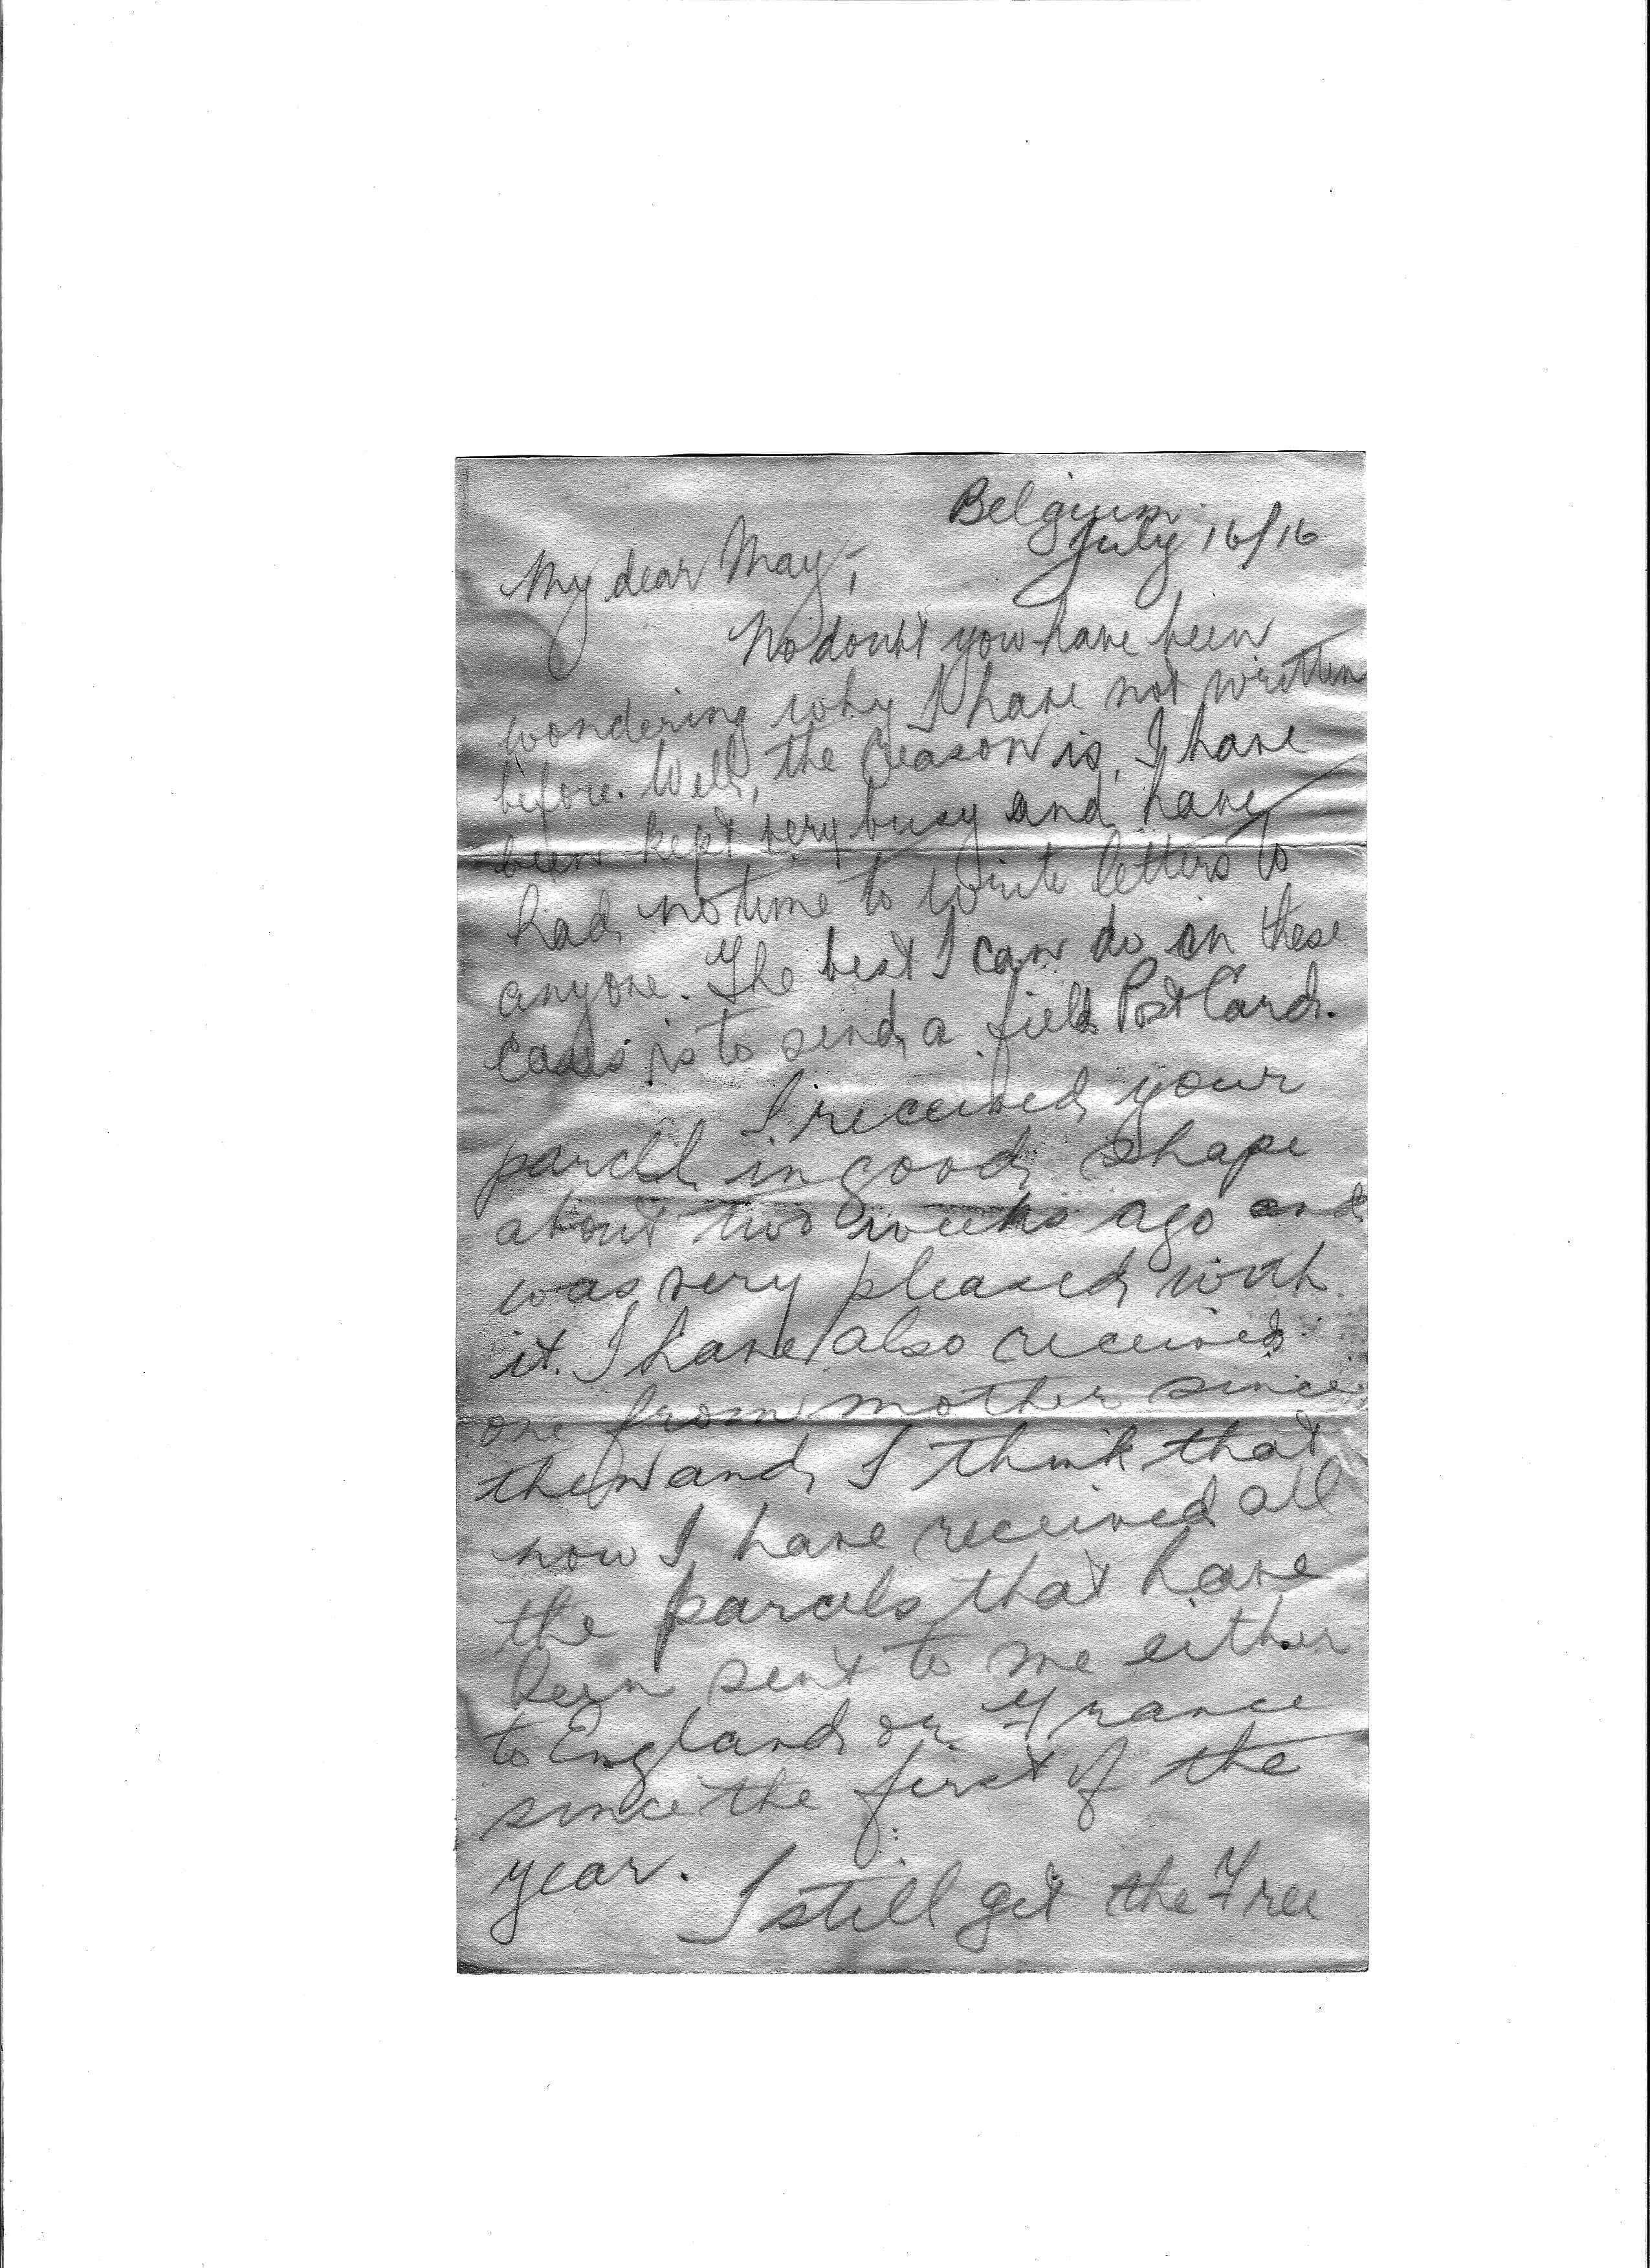 Belgium.
July 16/16
My dear May,-
No doubt you have been
wondering why I have not written
before. Well, the reason is, I have
been kept very busy and have
had no time to write letters to
anyone. The best I can do in these
cases is to send a field Post Card.
I received your
parcel in good shape
about two weeks ago and
was very pleased with
it. I have also received
one from mother since
then and I think that
now I have received all
the parcels that have
been sent to me either
to England or France
since the first of the
year.
I still get the Free